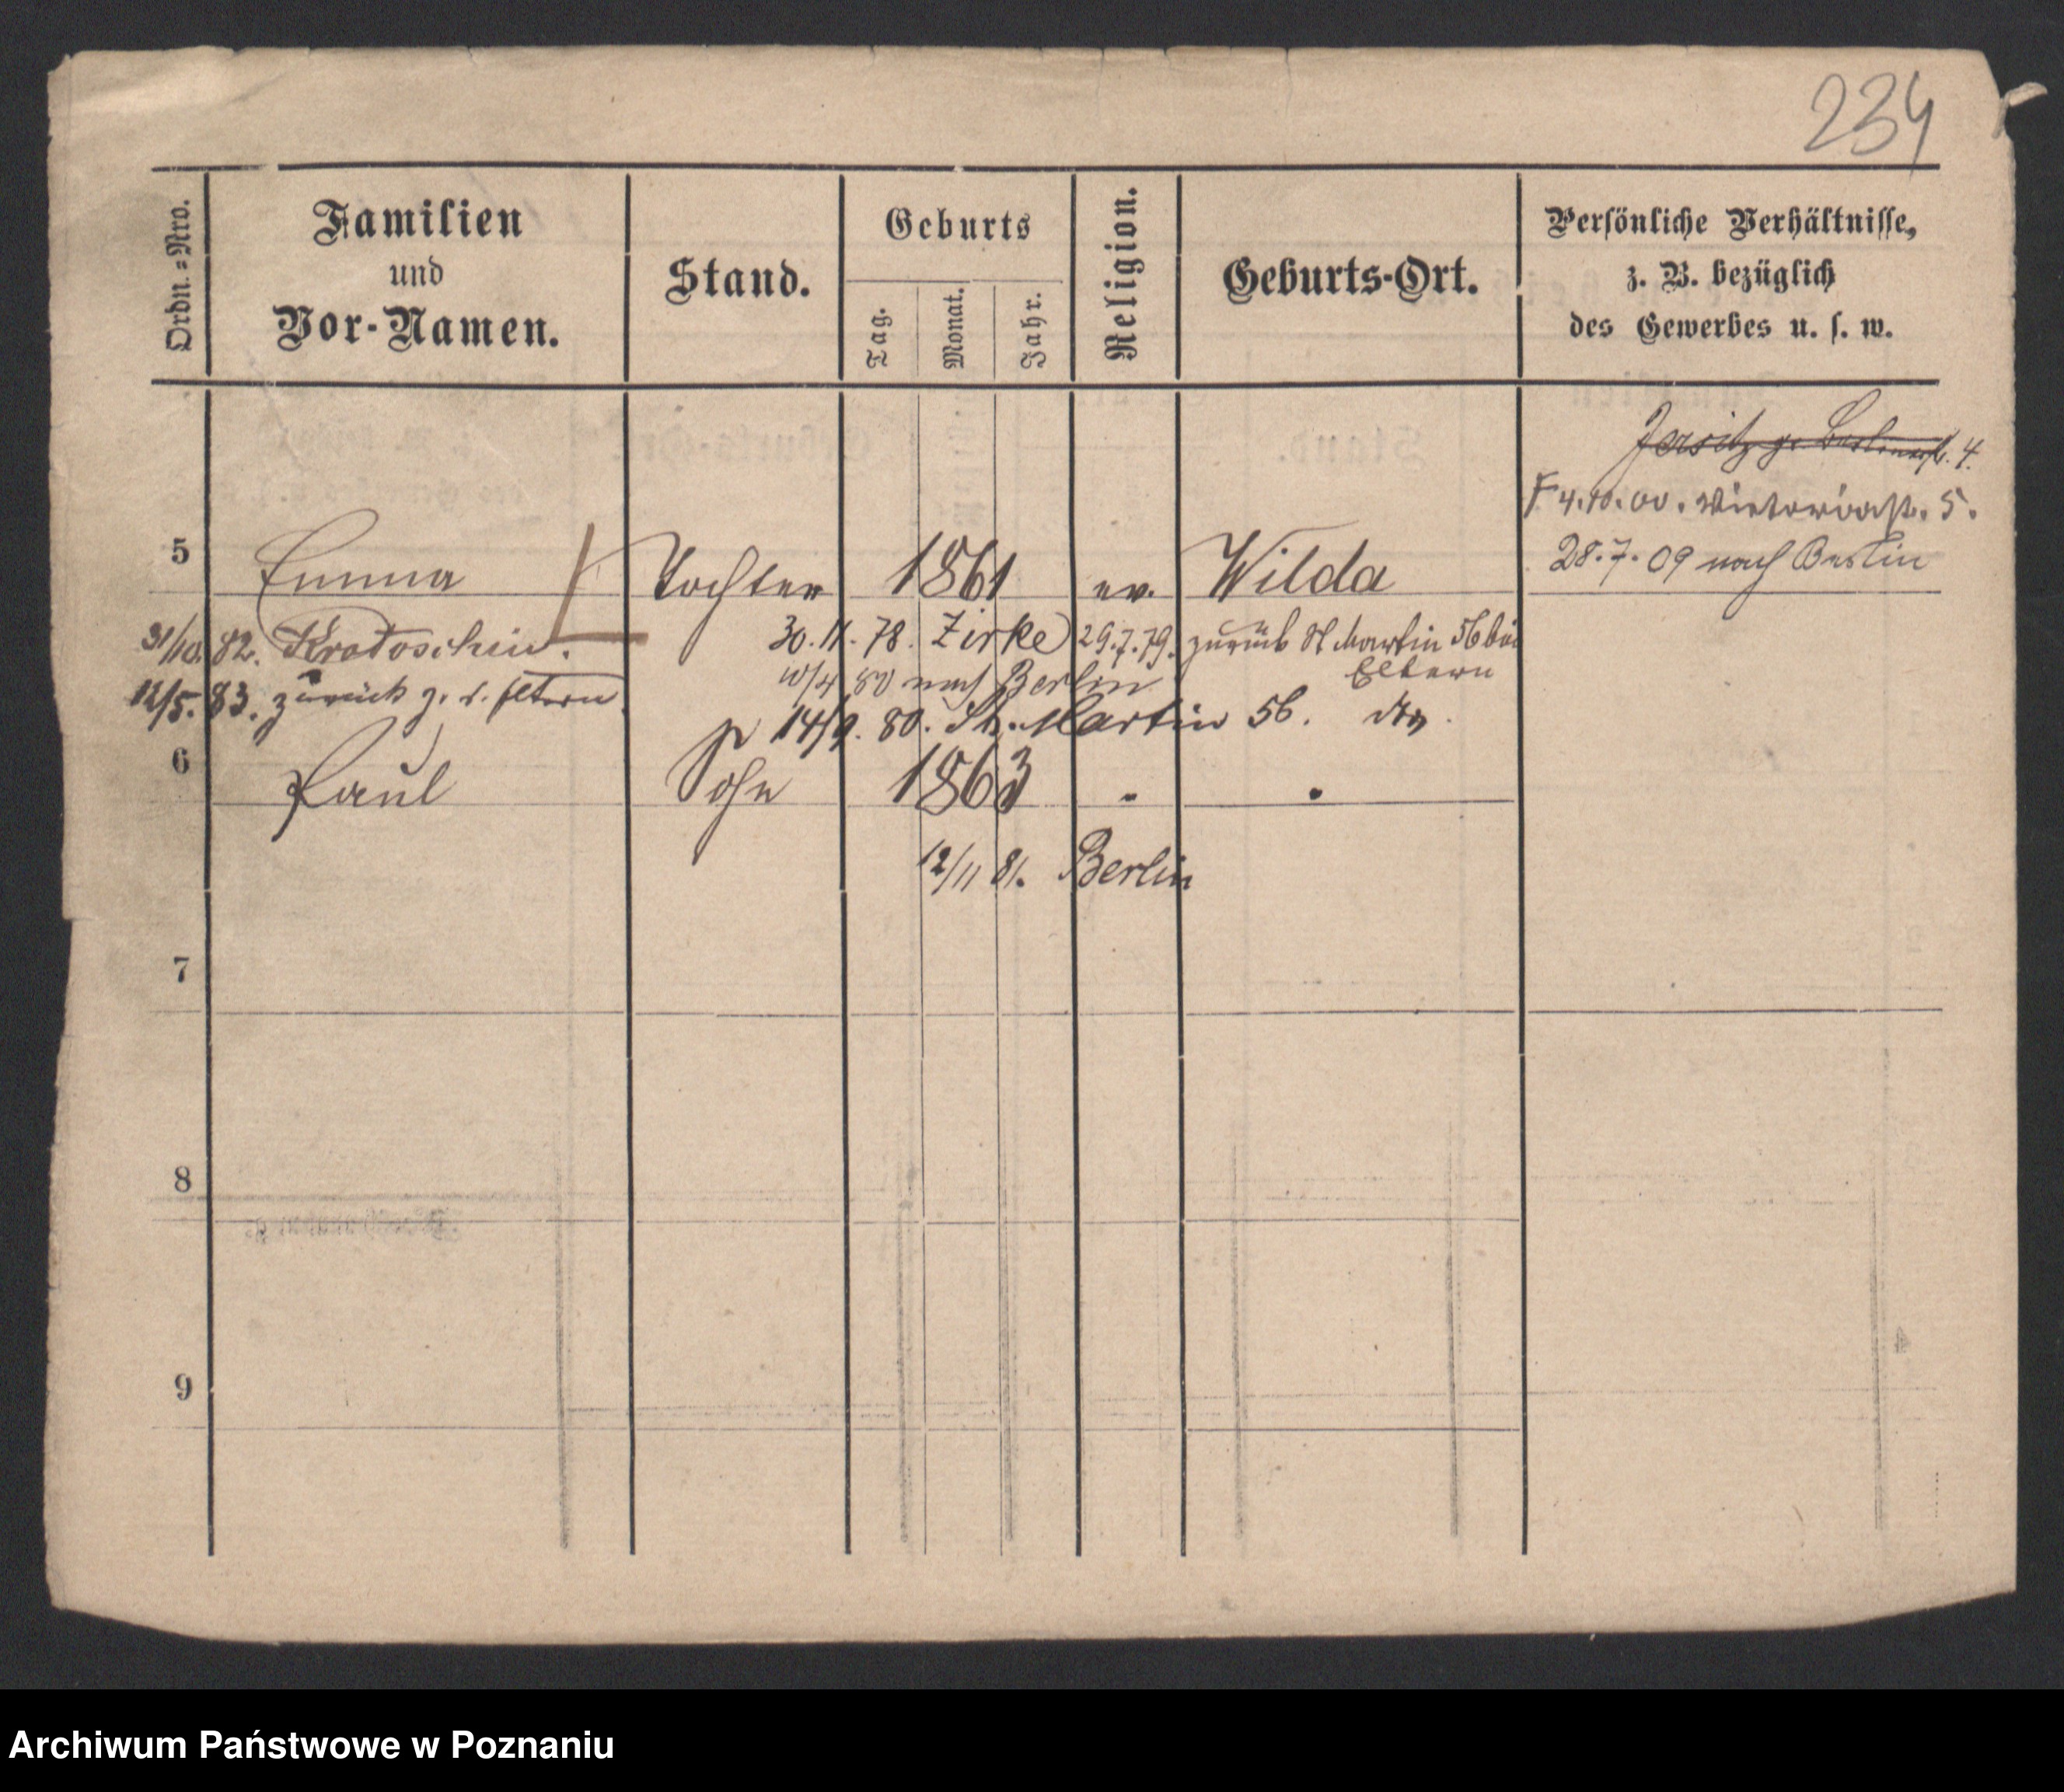 234
Ordn.=Nro.
Familien
und
Vor-Namen.
Stand.
Geburts
Tag.
Monat.
Jahr.
Religion.
Geburts-Ort.
Persönliche Verhältnisse,
z. B. bezüglich
des Gewerbes u. s. w.
Jersitz gr. Berlinerstr. 4.
4.10.00. Victoriastr. 5.
28.7.09 nach Berlin
5 Emma Tochter 1861 ev. Wilda
31/10. 82. Krotoschin. 30.11.78. Zirke 29.7.79. zurück St Martin 56 bei
Eltern
10/4 80 nach Berlin
12/5. 83. zurück z. d. Eltern
14/9. 80. St. Martin 56.
6 Paul Sohn 1863 " "
12/11 81. Berlin
7
8
9
Archiwum Państwowe w Poznaniu